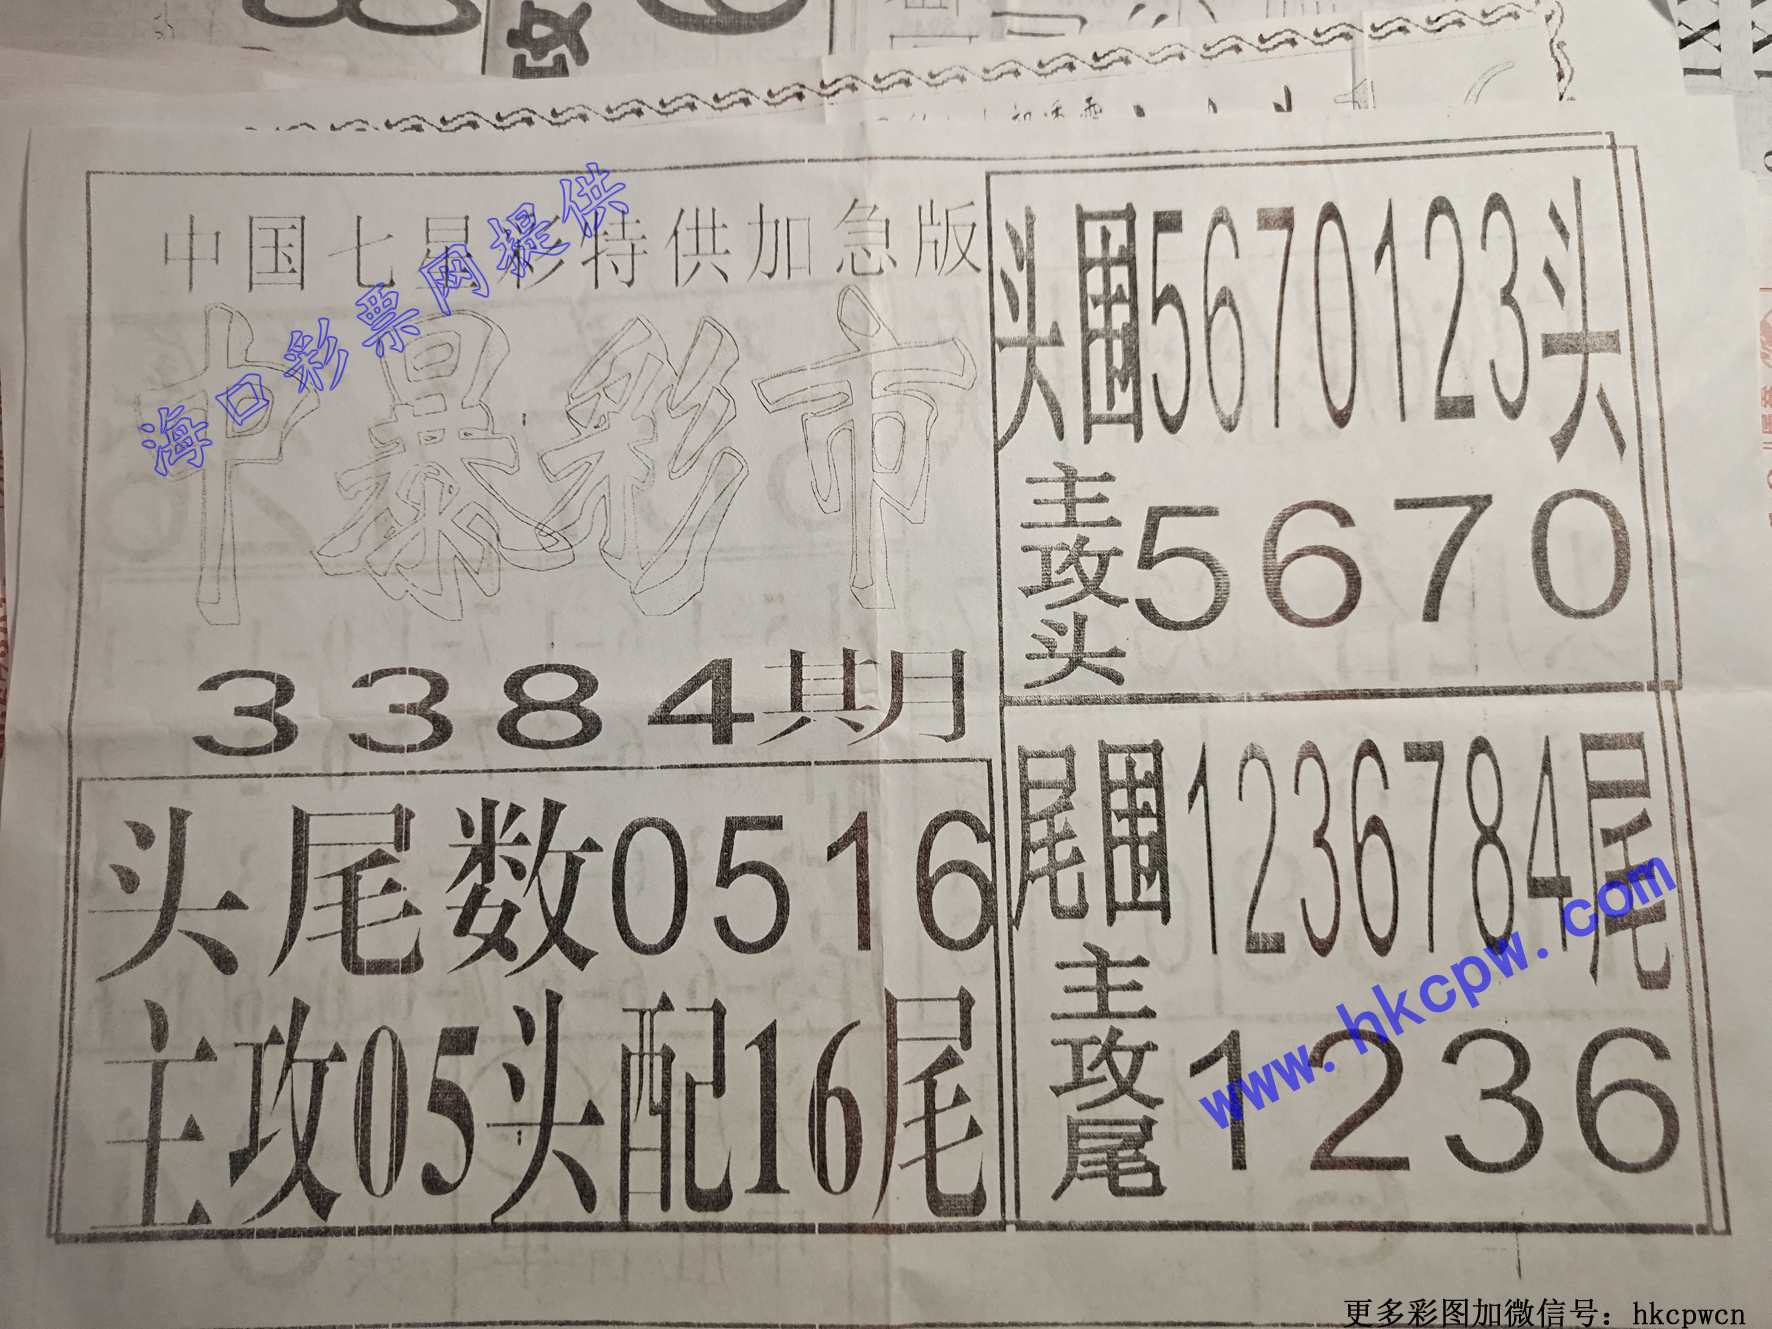 攻
中国七星彩特供加急版
中暴彩市
3384期
头尾数0516
主攻05头配16尾
头围5670123头
主攻头5670
尾围1236784尾
主攻尾1236
海口彩票网提供
www.hkcpw.com
更多彩图加微信号：hkcpwcn